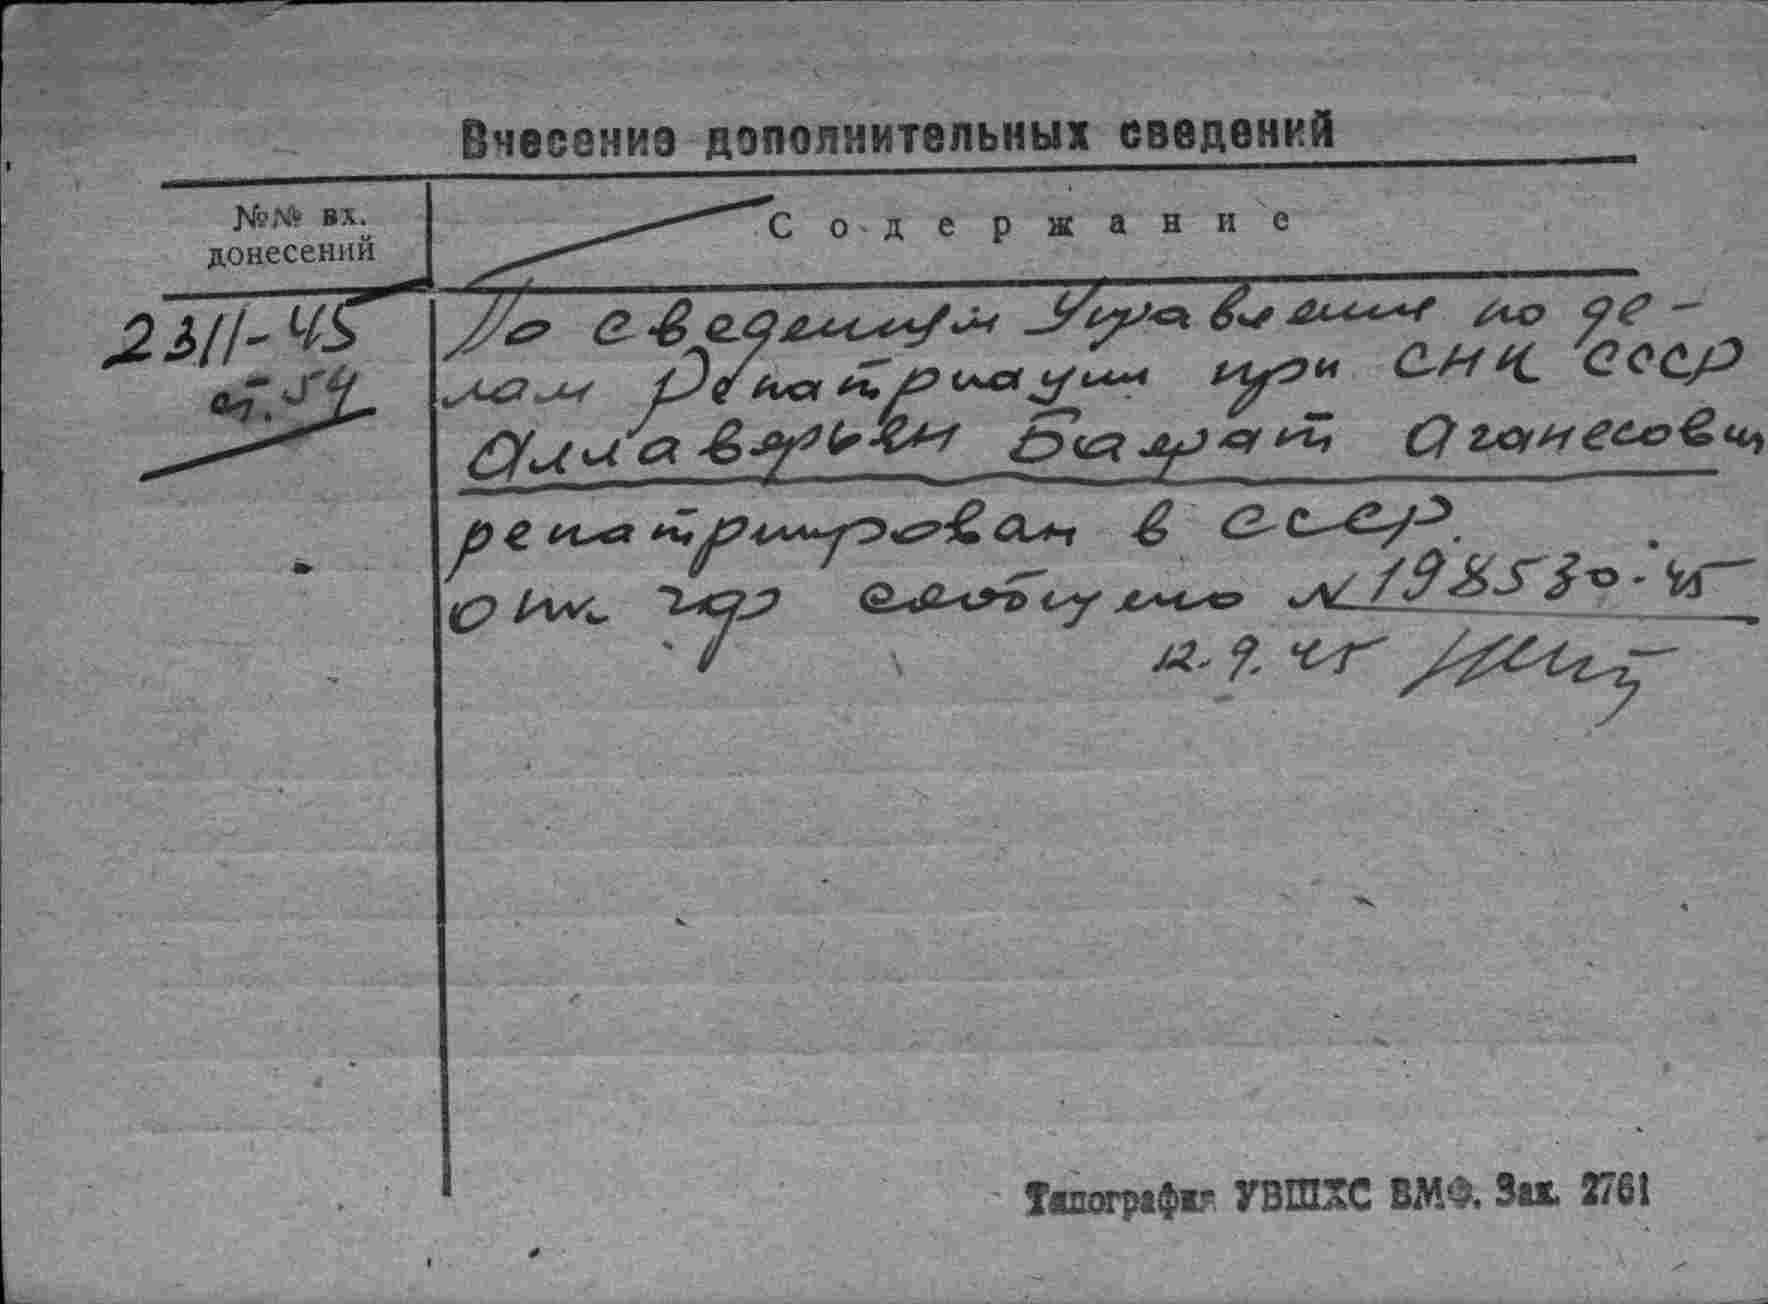 Внесение дополнительных сведений
№№ вх.
донесений
Содержание
2311-45
ст. 54
По сведениям Управления по де-
лам Репатриации при СНК СССР
Аллавярьян Баграт Аганесович
репатриирован в СССР.
сообщено N 198530-45
12.9.45
Типография УВШХС ВМФ. Зак. 2761